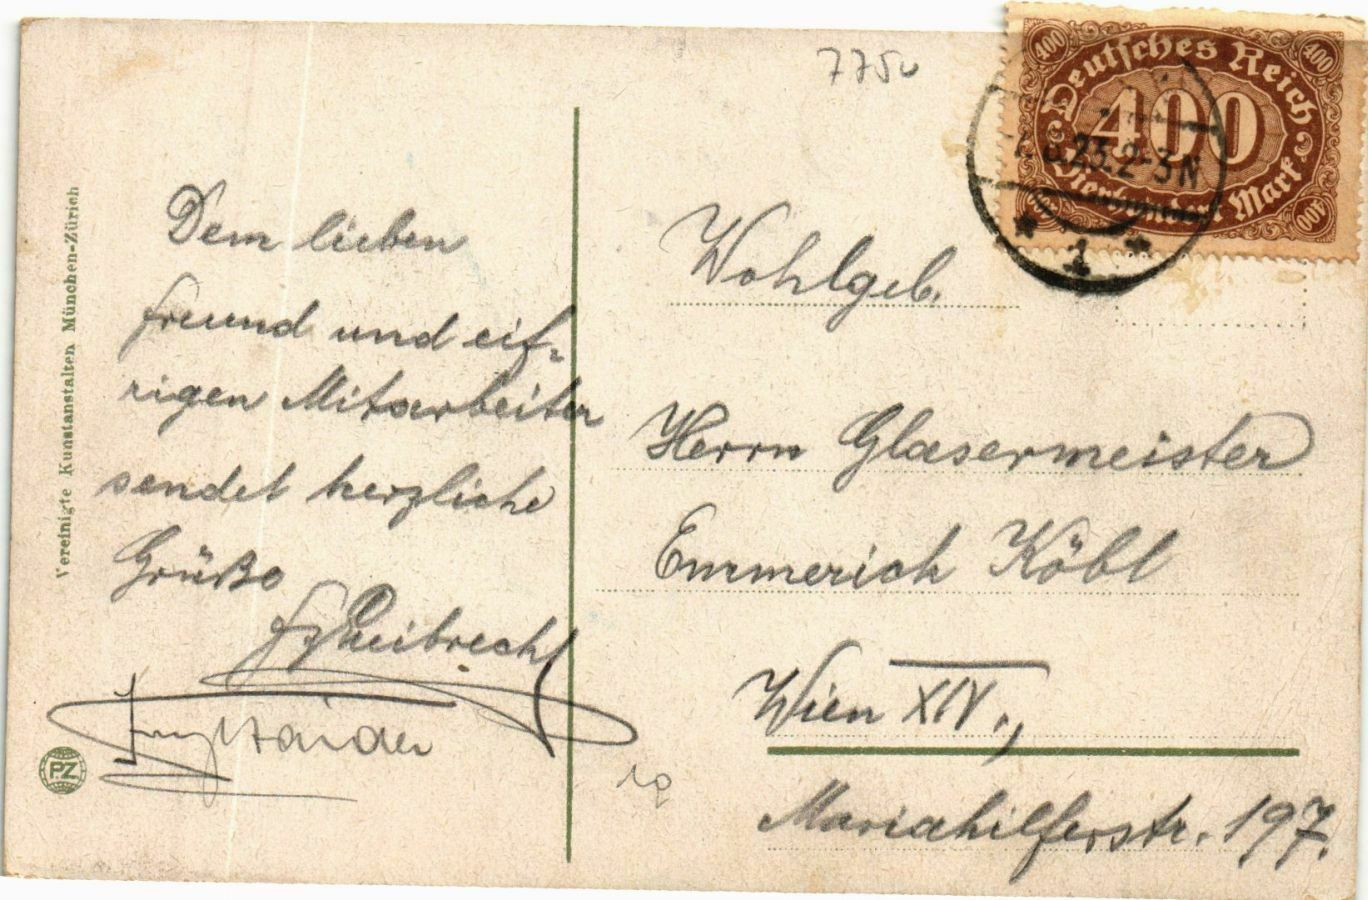 7750
Deutsches Reich
400
400
400
Vierhundert Mark
23.2-3N
* 1 *
Vereinigte Kunstanstalten München-Zürich
Dem lieben
Freund und eif-
rigen Mitarbeiter
sendet herzliche
Grüße
PZ
Wohlgeb.
Herrn Glasermeister
Emmerich Köbl
Wien XIV.,
Mariahilferstr. 197.